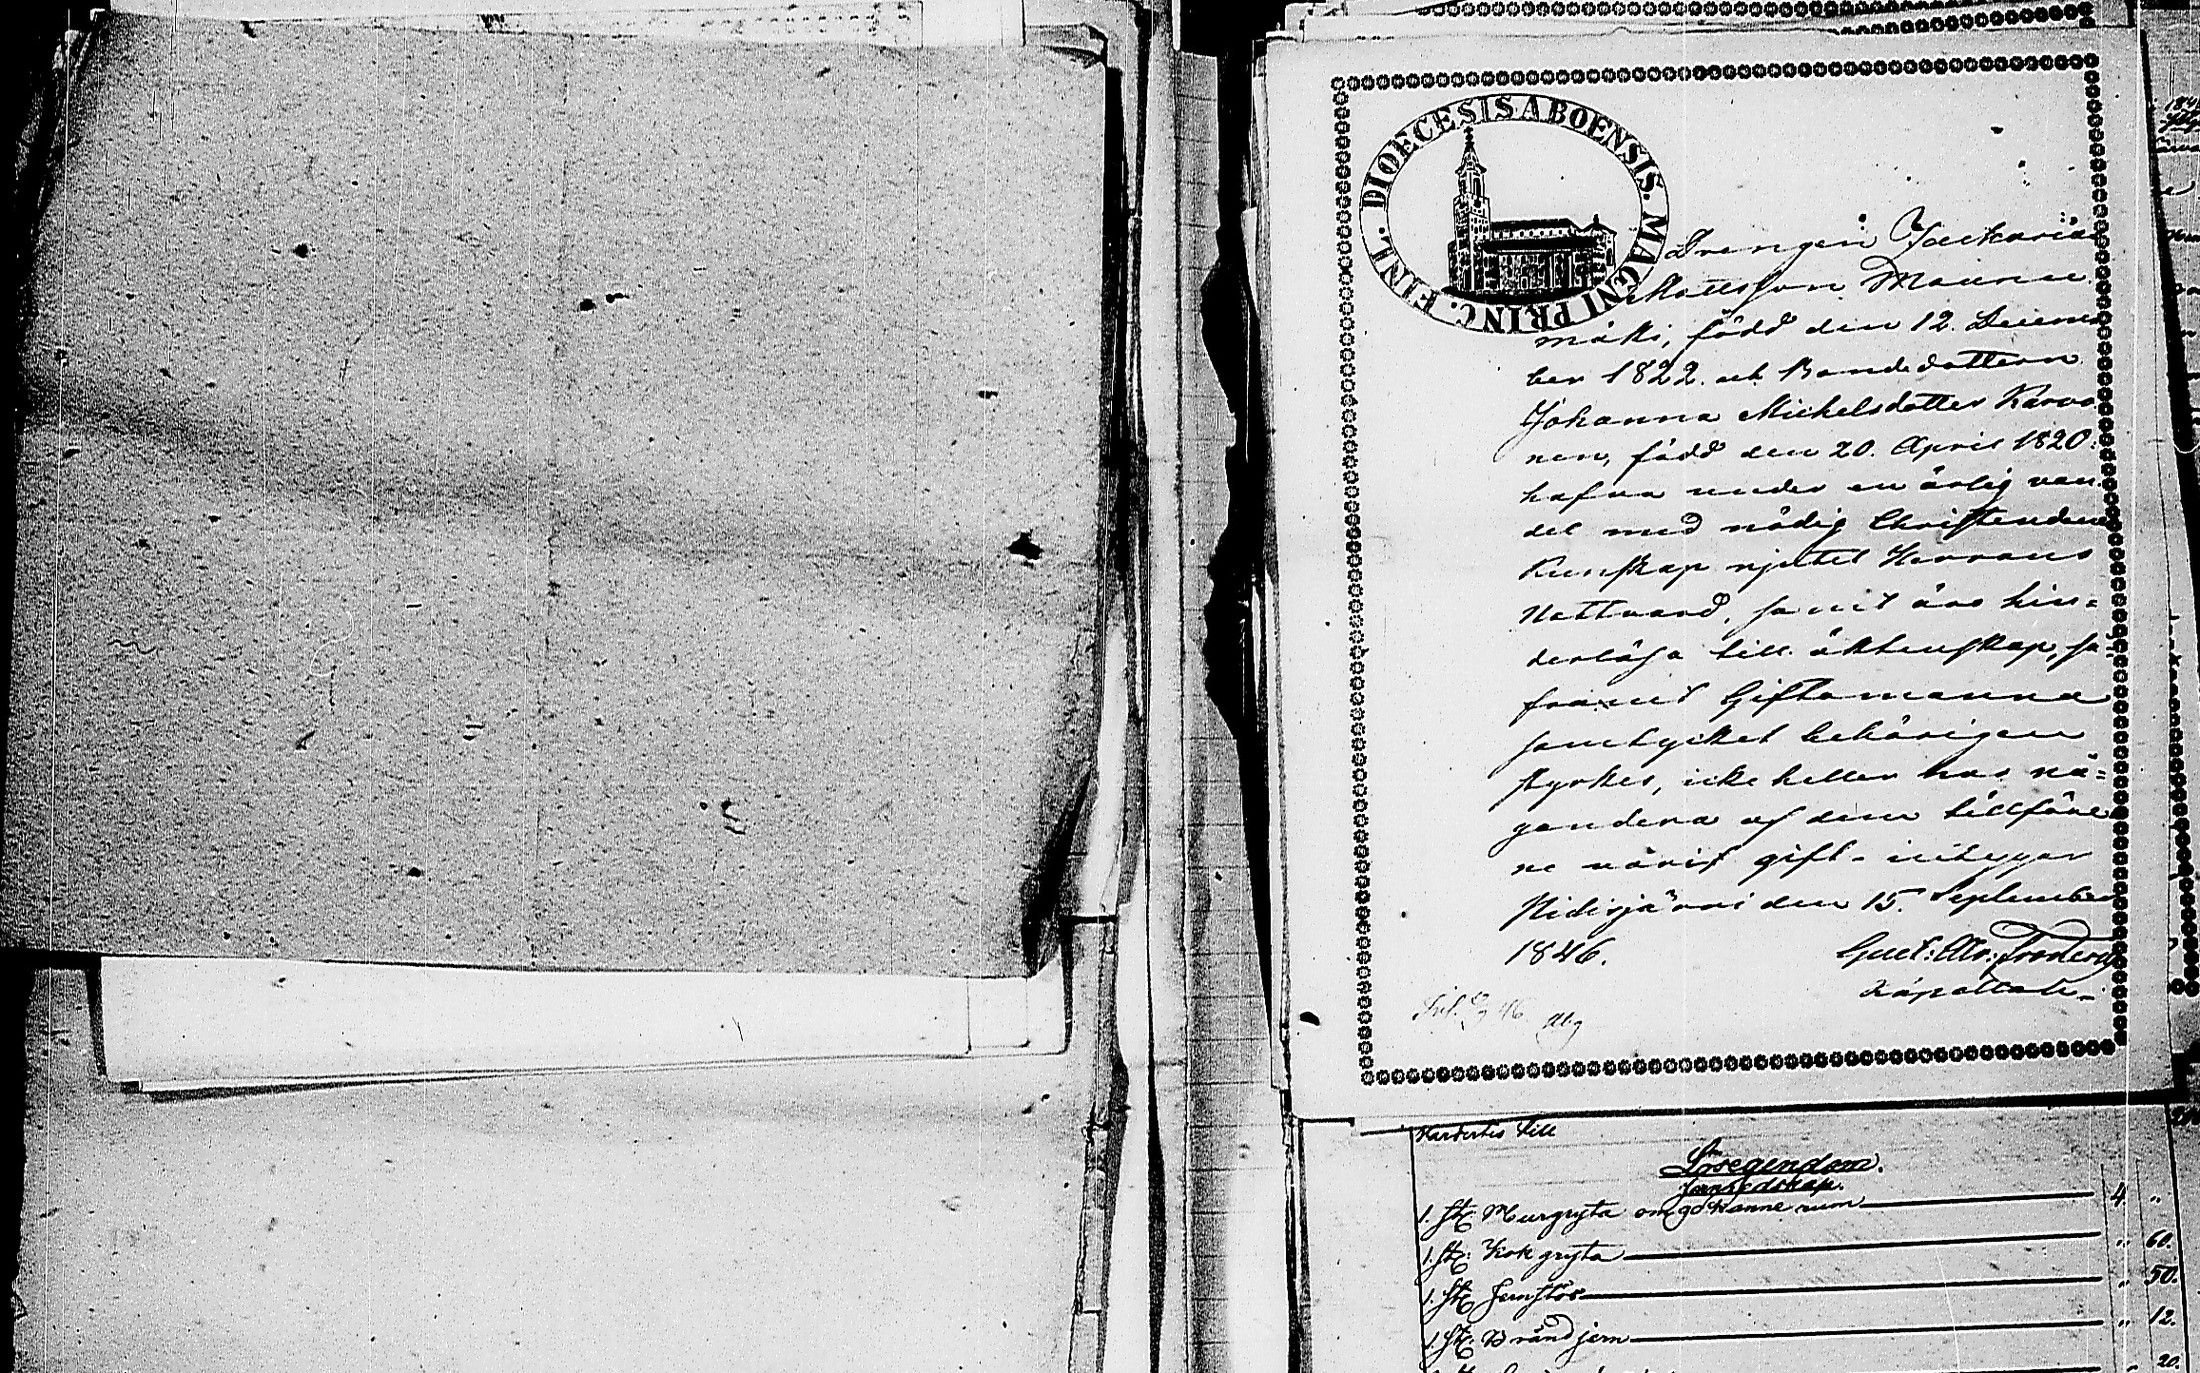 DIOECESIS ABOENSIS. MAGNI PRINC. FINL.
Drengen Zackarias
Mattsson Maunu
mäki, född den 12. Decem
ber 1822. och Bondedottern
Johanna Michelsdotter Karvo
nen, född den 20. April 1820.
hafva under en ärlig van
del med nödig Christendoms
Kunskap njutit Herrans
Nattvard, samt äro hin=
derlösa till äktenskap, så
framt Giftomanna
samtycket behörigen
styrkes, icke heller has nå=
gondera af dem tillföre
ne varit gift. intygar
Pidisjärvi den 15. September
1846.
Kapellan.
Lösegendom.
Jernredskap.
1. St. Murgryta om 90 Kanne rum 4 "
1. St. Kokgryta " 60.
1. St. " 50.
1. St. Brändjern " 12.
20.